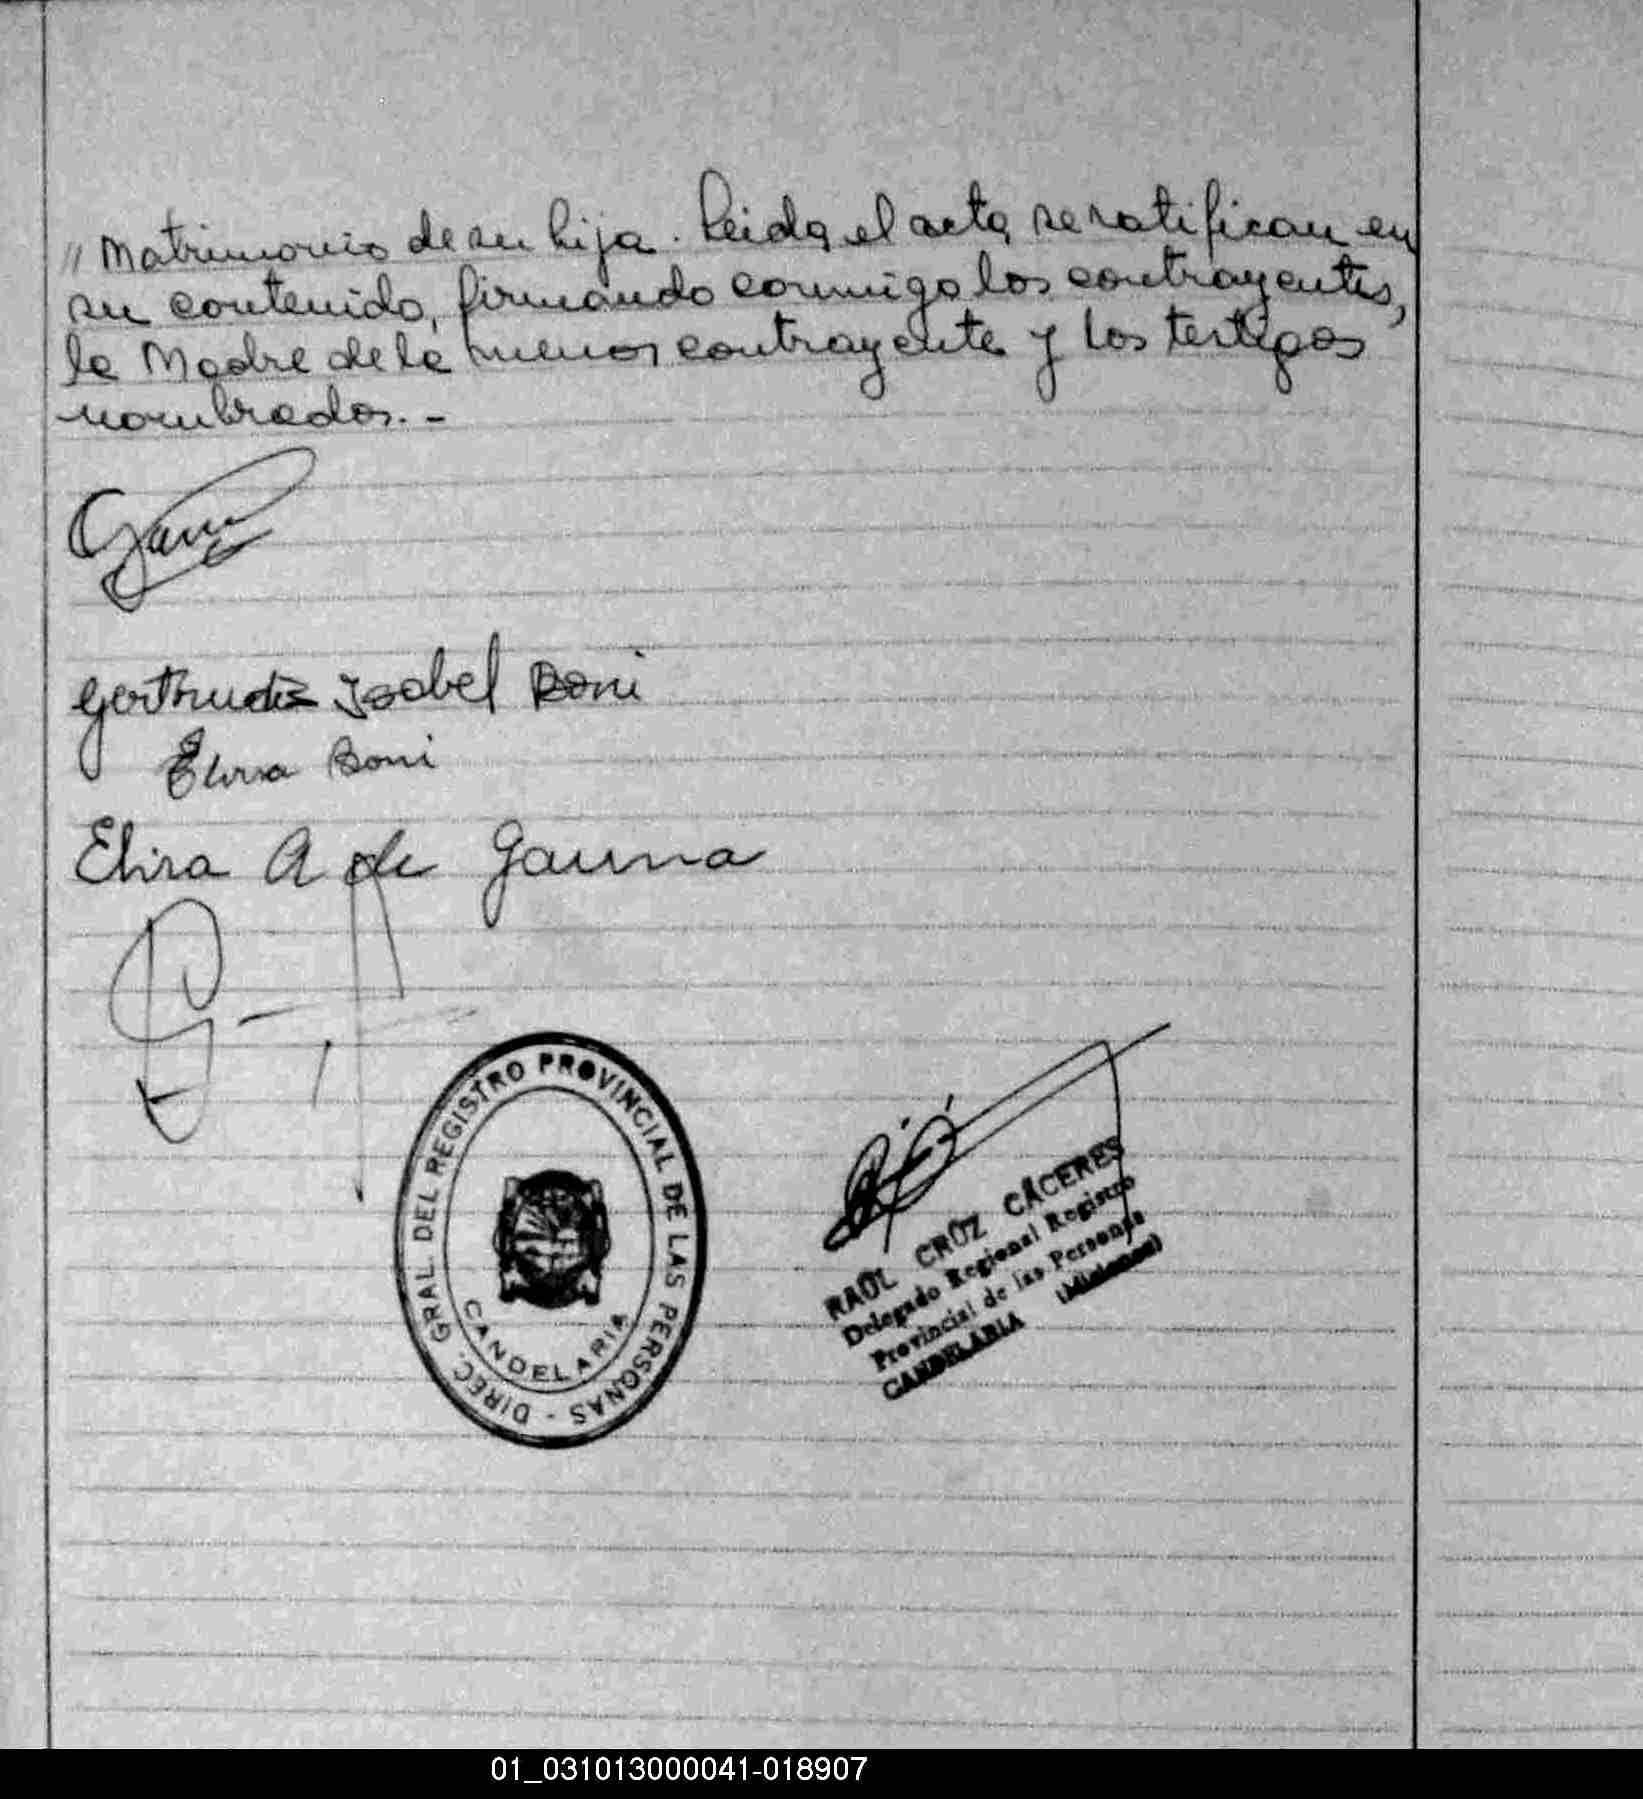 // Matrimonio de su hija. Leida el acta, se ratifican en
su contenido, firmando conmigo los contrayentes,
la Madre de la menor contrayente y los testigos
nombrados.-
Gertrudis Isabel Boni
Elvira Boni
Elvira A de Gauna
DIREC. GRAL. DEL REGISTRO PROVINCIAL DE LAS PERSONAS -
CANDELARIA
RAÚL CRÚZ CÁCERES
Delegado Regional Registro
Provincial de las Personas
CANDELARIA (Misiones)
01_031013000041-018907